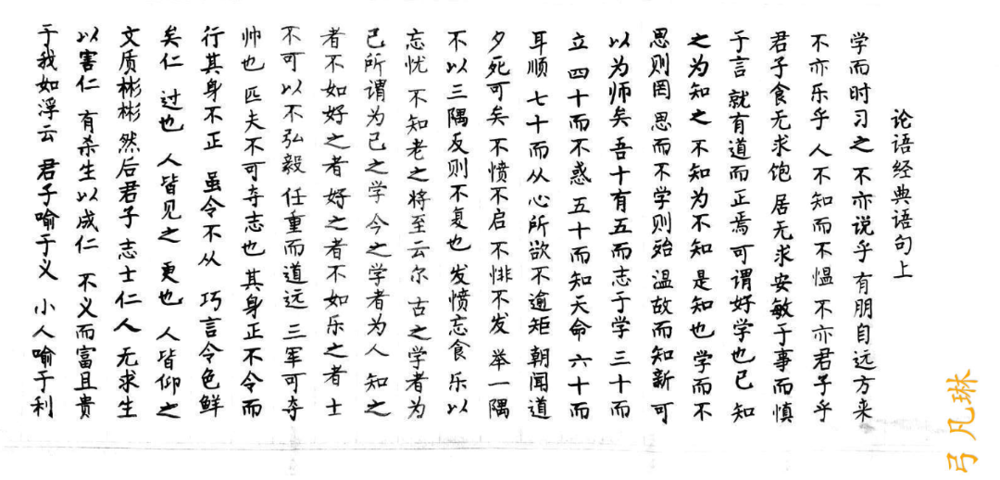 论语经典语句上
学而时习之 不亦说乎 有朋自远方来
不亦乐乎 人不知而不愠 不亦君子乎
君子食无求饱 居无求安敏于事而慎
于言 就有道而正焉 可谓好学也已 知
之为知之 不知为不知 是知也 学而不
思则罔 思而不学则殆 温故而知新 可
以为师矣 吾十有五而志于学 三十而
立 四十而不惑 五十而知天命 六十而
耳顺 七十而从心所欲不逾矩 朝闻道
夕死可矣 不愤不启 不悱不发 举一隅
不以三隅反则不复也 发愤忘食 乐以
忘忧 不知老之将至云尔 古之学者为
己所谓为己之学 今之学者为人 知之
者不如好之者 好之者不如乐之者 士
不可以不弘毅 任重而道远 三军可夺
帅也 匹夫不可夺志也 其身正不令而
行其身不正 虽令不从 巧言令色鲜
矣仁 过也 人皆见之 更也 人皆仰之
文质彬彬 然后君子 志士仁人 无求生
以害仁 有杀生以成仁 不义而富且贵
于我如浮云 君子喻于义 小人喻于利
弓凡琳